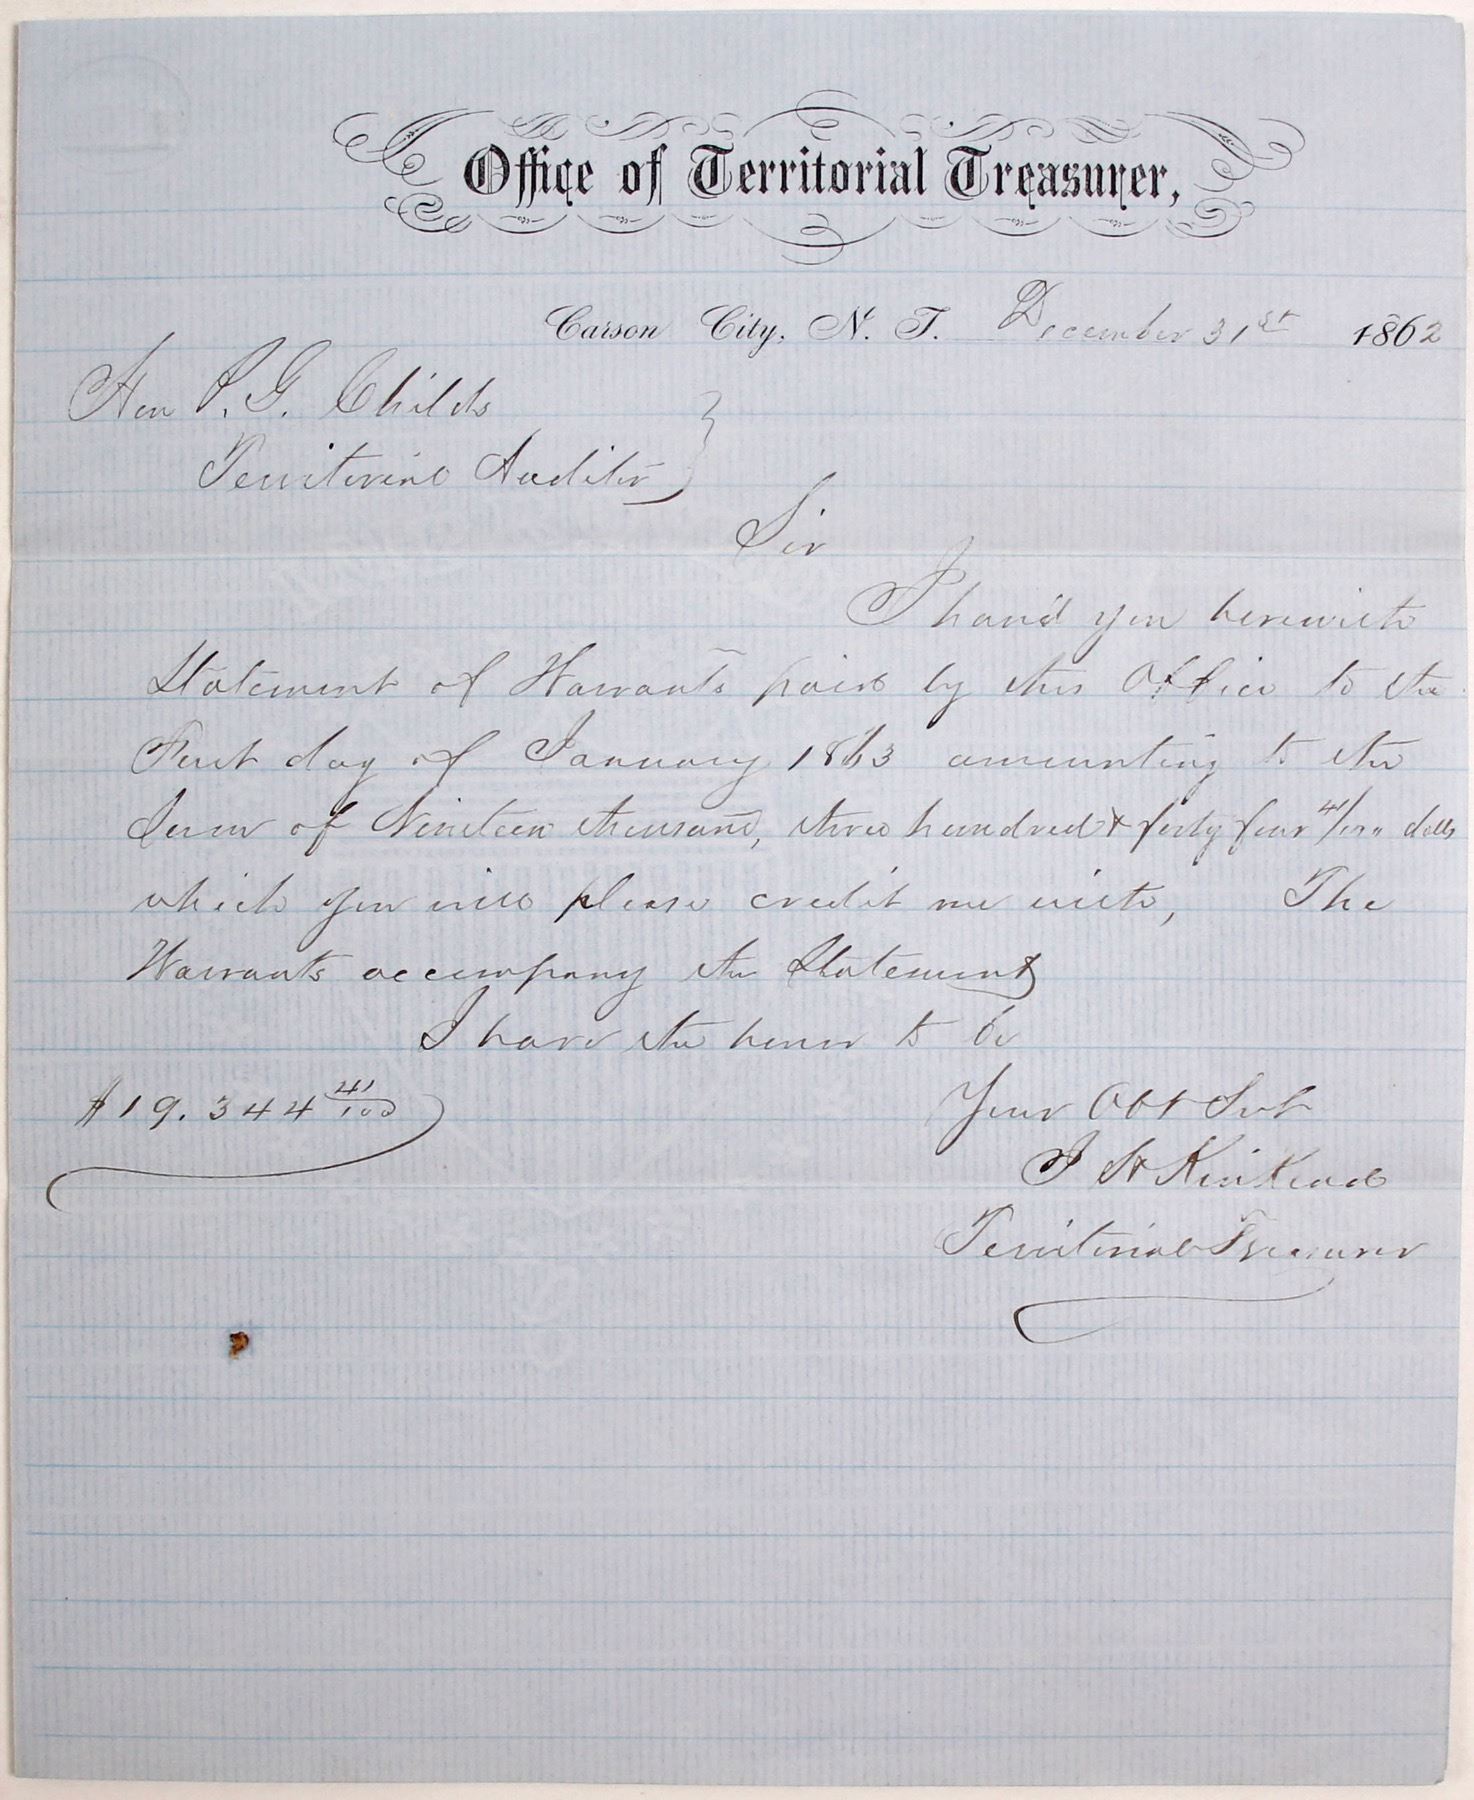 Office of Territorial Treasurer,
Carson City, N. T. December 31st 1862
Hon P. G. Childs
Territorial Auditor
Sir
I hand you herewith
Statement of Warrants paid by this Office to the
First day of January 1863 amounting to the
Sum of Nineteen thousand, three hundred & forty four 41/100 dolls
which you will please credit me with, The
Warrants accompany the Statement
I have the honor to be
$19.344 41/100
Your Obt Svt
J H Kinkead
Territorial Treasurer